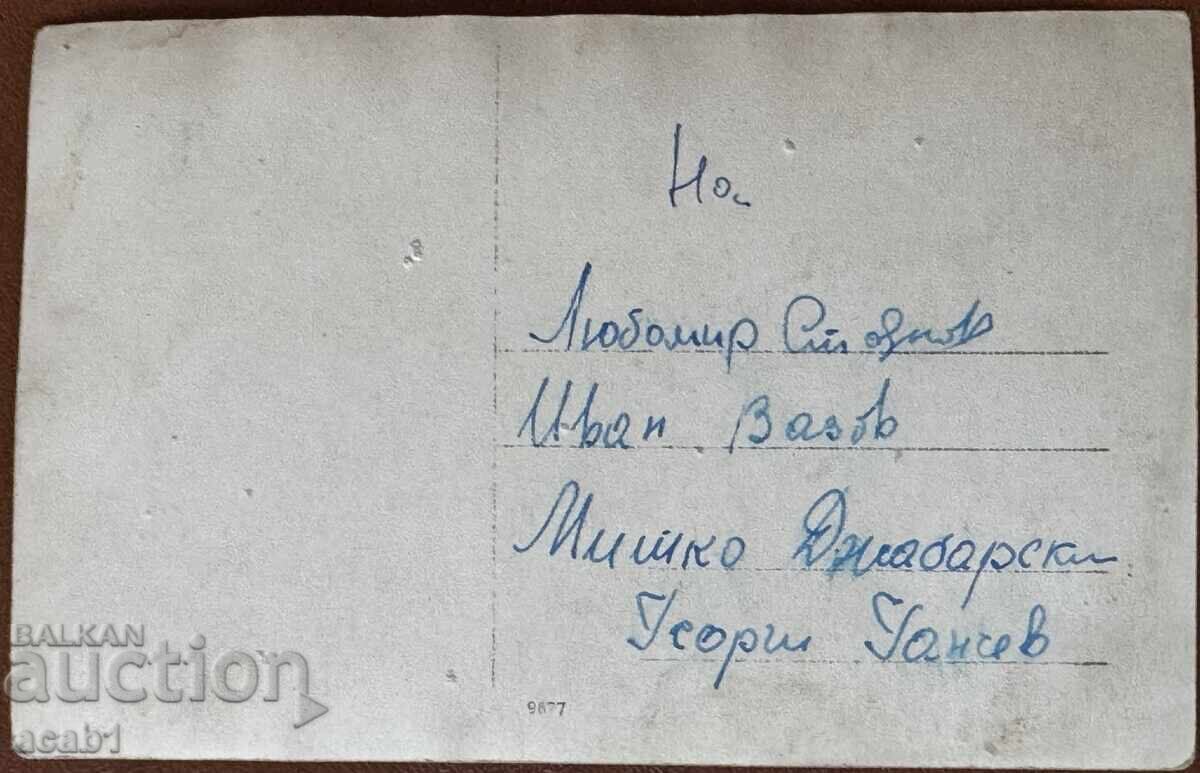 На
Любомир Стоянов
Иван Вазов
Мишко Джабарски
Георги Ганчев
9677
BALKAN
auction
acab1